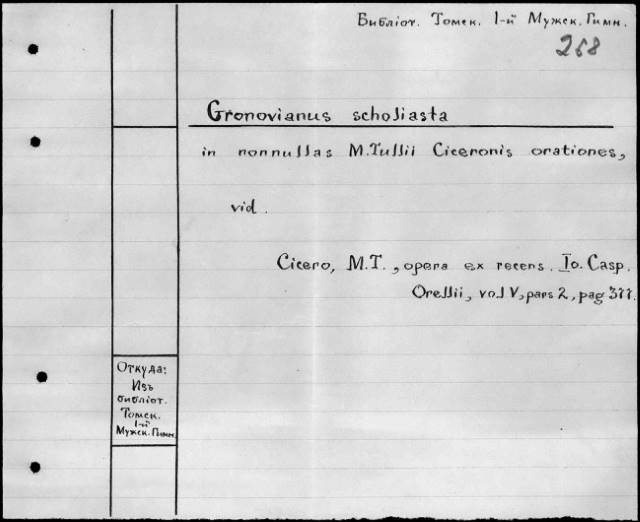 Библіот. Томск. 1-й Мужск. Гимн.
268
Gronovianus scholiasta
in nonnullas M. Tullii Ciceronis orationes,
vid.
Cicero, M.T., opera ex recens. Io. Casp.
Orellii, vol V, pars 2, pag 377.
Откуда:
Изъ
библіот.
Томск.
1-й
Мужск. Гимн.